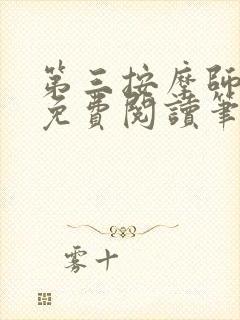 第三按摩師
免費閱讀筆
雾十